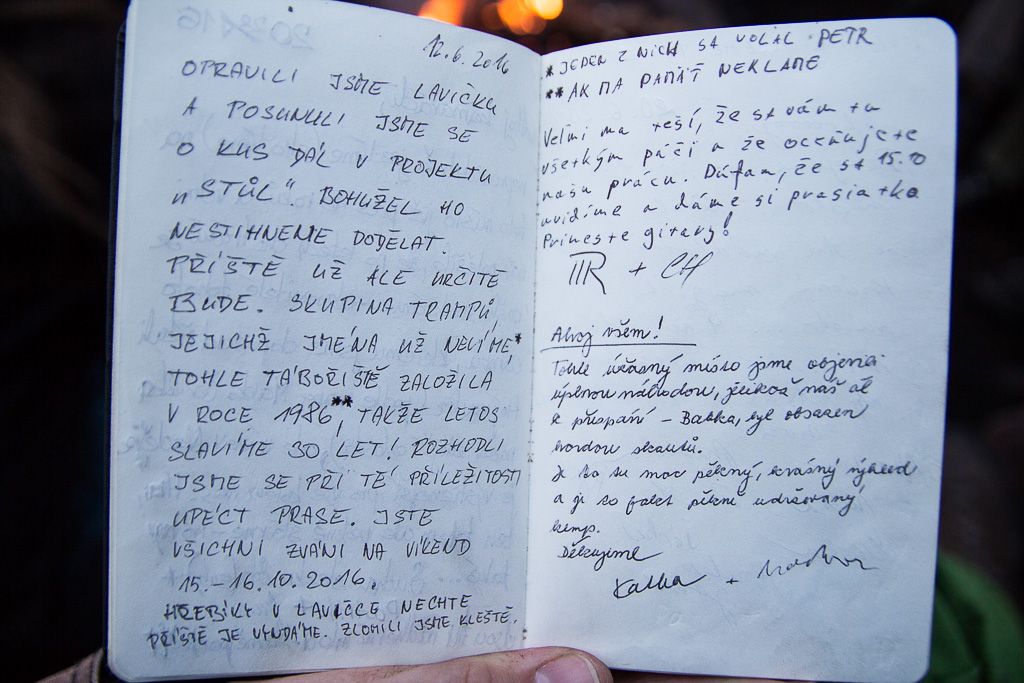 12.6.2016
OPRAVILI JSME LAVIČKU
A POSUNULI JSME SE
O KUS DÁL V PROJEKTU
„STŮL“ BOHUŽEL HO
NESTIHNEME DODĚLAT.
PŘÍŠTĚ UŽ ALE URČITĚ
BUDE. SKUPINA TRAMPŮ
JEJICHŽ JMÉNA UŽ NEVÍME,*
TOHLE TÁBOŘIŠTĚ ZALOŽILA
V ROCE 1986**, TAKŽE LETOS
SLAVÍME 30 LET! ROZHODLI
JSME SE PŘI TÉ PŘÍLEŽITOSTI
UPÉCT PRASE. JSTE
VŠICHNI ZVÁNI NA VÍKEND
15.-16.10.2016.
HŘEBÍKY V LAVIČCE NECHTE
PŘÍŠTĚ JE VYNDÁME. ZLOMILI JSME KLEŠTĚ.
* JEDEN Z NICH SA VOLAL PETR
** AK MA PAMÄŤ NEKLAME
Veľmi ma teší, že sa vám tu
všetkým páči a že oceňujete
našu prácu. Dúfam, že sa 15.10
uvidíme a dáme si prasiatko
Prineste gitary!
+ CH
Ahoj všem!
Tohle úžasný místo jsme objevili
úplnou náhodou, jelikož náš cíl
k přespání - Babka, byl obsazen
hordou skautů.
Je to tu moc pěkný, krásný výhled
a je to fakt pěkně udržovaný
kemp.
Děkujeme
Katka +